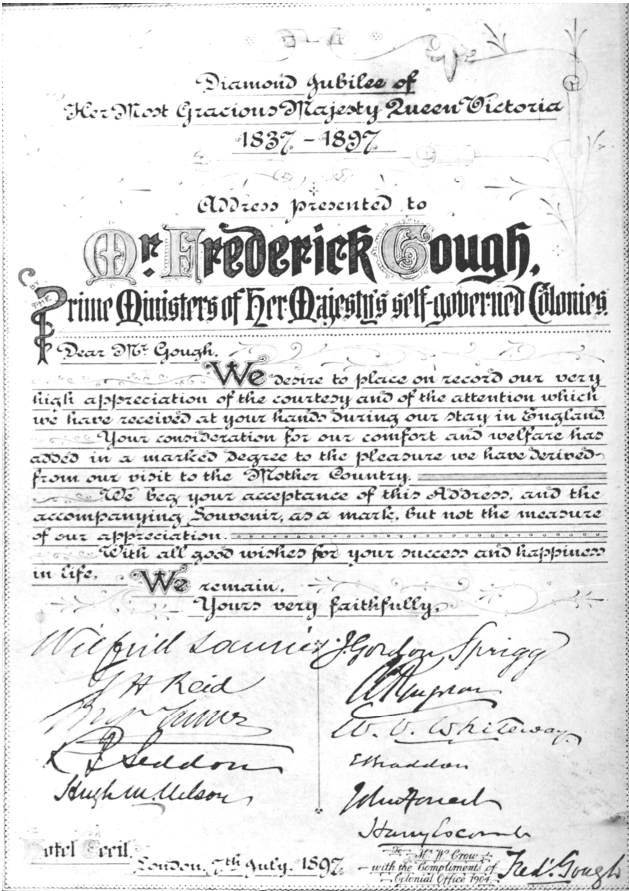 Diamond Jubilee of
Her Most Gracious Majesty Queen Victoria
1837 - 1897
Address presented to
Mr. Frederick Gough,
BY THE
Prime Ministers of Her Majesty's self-governed Colonies.
Dear Mr. Gough,
We desire to place on record our very
high appreciation of the courtesy and of the attention which
we have received at your hands during our stay in England
Your consideration for our comfort and welfare has
added in a marked degree to the pleasure we have derived
from our visit to the Mother Country.
We beg your acceptance of this Address, and the
accompanying Souvenir, as a mark, but not the measure
of our appreciation.
With all good wishes for your success and happiness
in life,
We remain,
Yours very faithfully,
Wilfrid Laurier
G H Reid
R J Seddon
Hugh M Nelson
J Gordon Sprigg
W. V. Whiteway
E Braddon
John Forrest
Harry Escombe
Hotel Cecil,
London, 7th July, 1897.
To Mr. W. Crow
with the Compliments of
Colonial Office 1904
Fredk. Gough